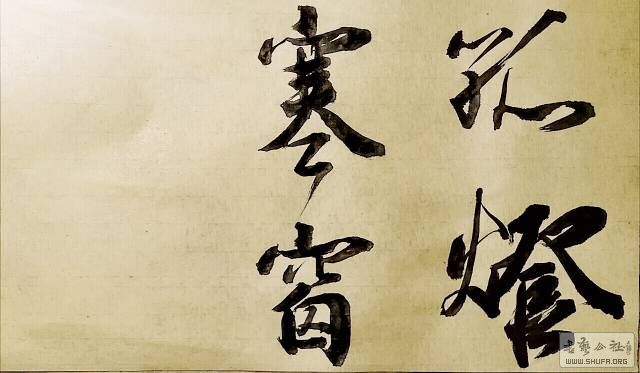 孤燈
寒窗
书艺公社
WWW.SHUFA.ORG